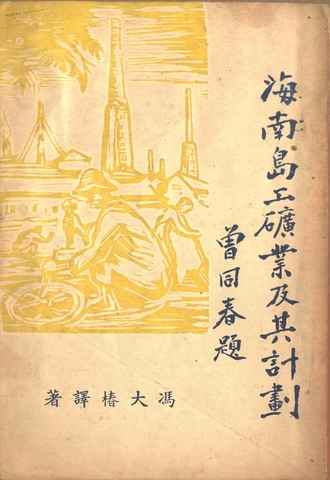 海南島工礦業及其計劃
曾同春題
馮大椿譯著